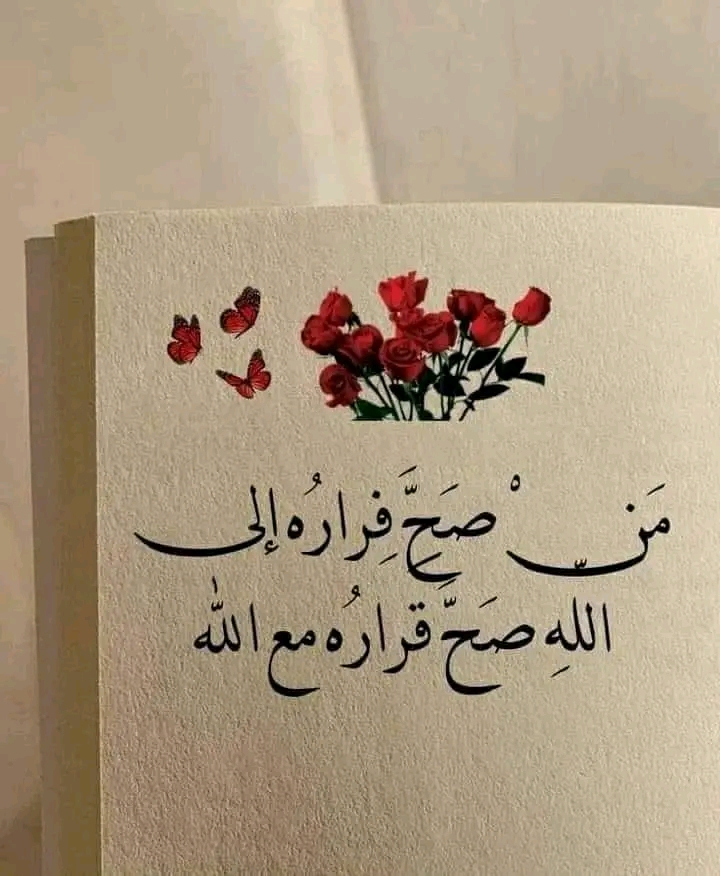 مَنْ صَحَّ فِرارُه إلى
اللهِ صَحَّ قرارُه مع الله